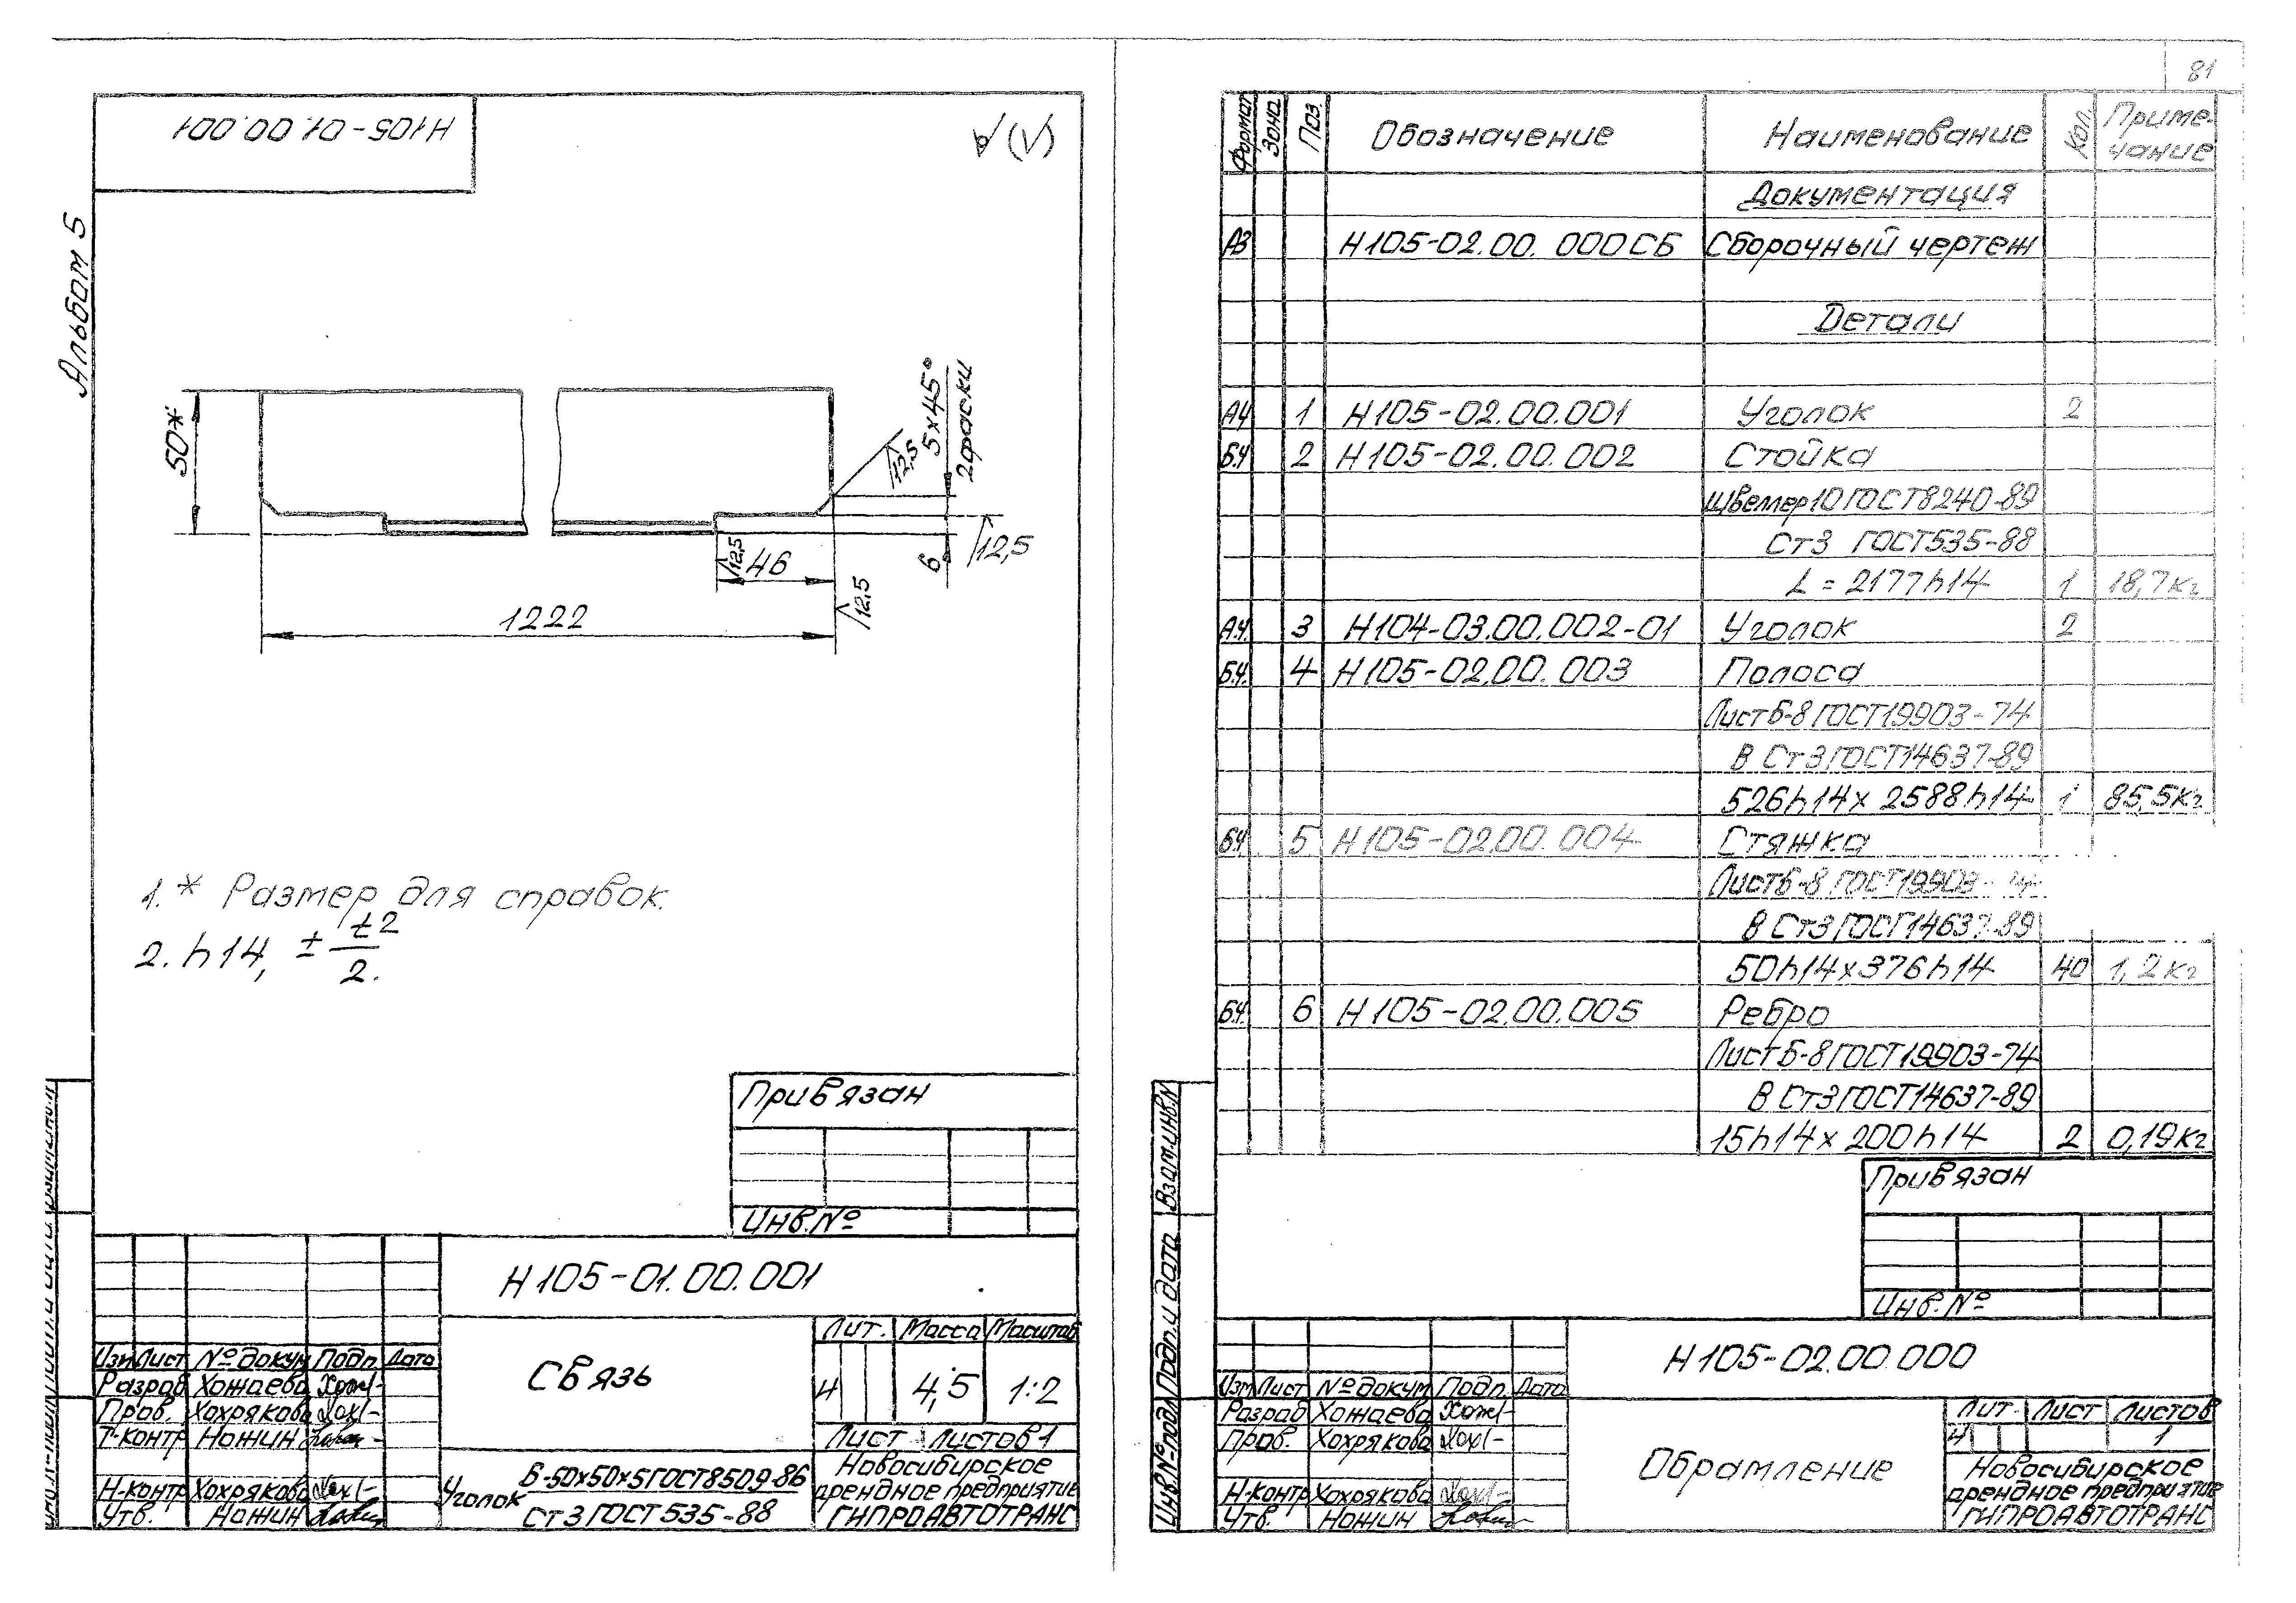 81
Н105-01.00.001
(√)
Альбом 5
50*
5х45°
2фаски
12,5
6
12,5
12,5
46
12,5
1222
1.* Размер для справок.
2. h14, ± t2
2.
Привязан
Инв.№
Н105-01.00.001
Лит. Масса Масштаб
Изм Лист №докум Подп Дата
Связь
И 4,5 1:2
Разраб Хожаева
Пров. Хохрякова
Т-контр Ножин
Лист Листов 1
Н-контр Хохрякова
Утв. Ножин
Уголок
Б-50х50х5ГОСТ8509-86
Ст3 ГОСТ 535-88
Новосибирское
арендное предприятие
ГИПРОАВТОТРАНС
Формат Зона Поз. Обозначение Наименование Кол. Приме-
чание
Документация
А3 Н105-02.00.000СБ Сборочный чертеж
Детали
А4 1 Н105-02.00.001 Уголок 2
Б.Ч 2 Н105-02.00.002 Стойка
Швеллер10ГОСТ8240-89
Ст3 ГОСТ535-88
L = 2177h14 1 18,7кг
А.4. 3 Н104-03.00.002-01 Уголок 2
Б.Ч. 4 Н105-02.00.003 Полоса
Лист Б-8 ГОСТ19903-74
В Ст3 ГОСТ14637-89
526h14х 2588h14 1 85,5кг
БЧ 5 Н105-02.00.004 Стяжка
Лист Б-8 ГОСТ19903-74
В Ст3 ГОСТ14637-89
50h14х376h14 40 1,2кг
Б.Ч. 6 Н105-02.00.005 Ребро
Лист Б-8 ГОСТ19903-74
В Ст3 ГОСТ14637-89
15h14х200h14 2 0,19кг
Инв.№подл Подп. и дата Взам.инв.N
Привязан
Инв.№
Н105-02.00.000
Изм Лист №докум Подп. Дата
Разраб Хожаева
Пров. Хохрякова
Н-контр Хохрякова
Утв. Ножин
Обрамление
Лит Лист Листов
И 1
Новосибирское
арендное предприятие
ГИПРОАВТОТРАНС